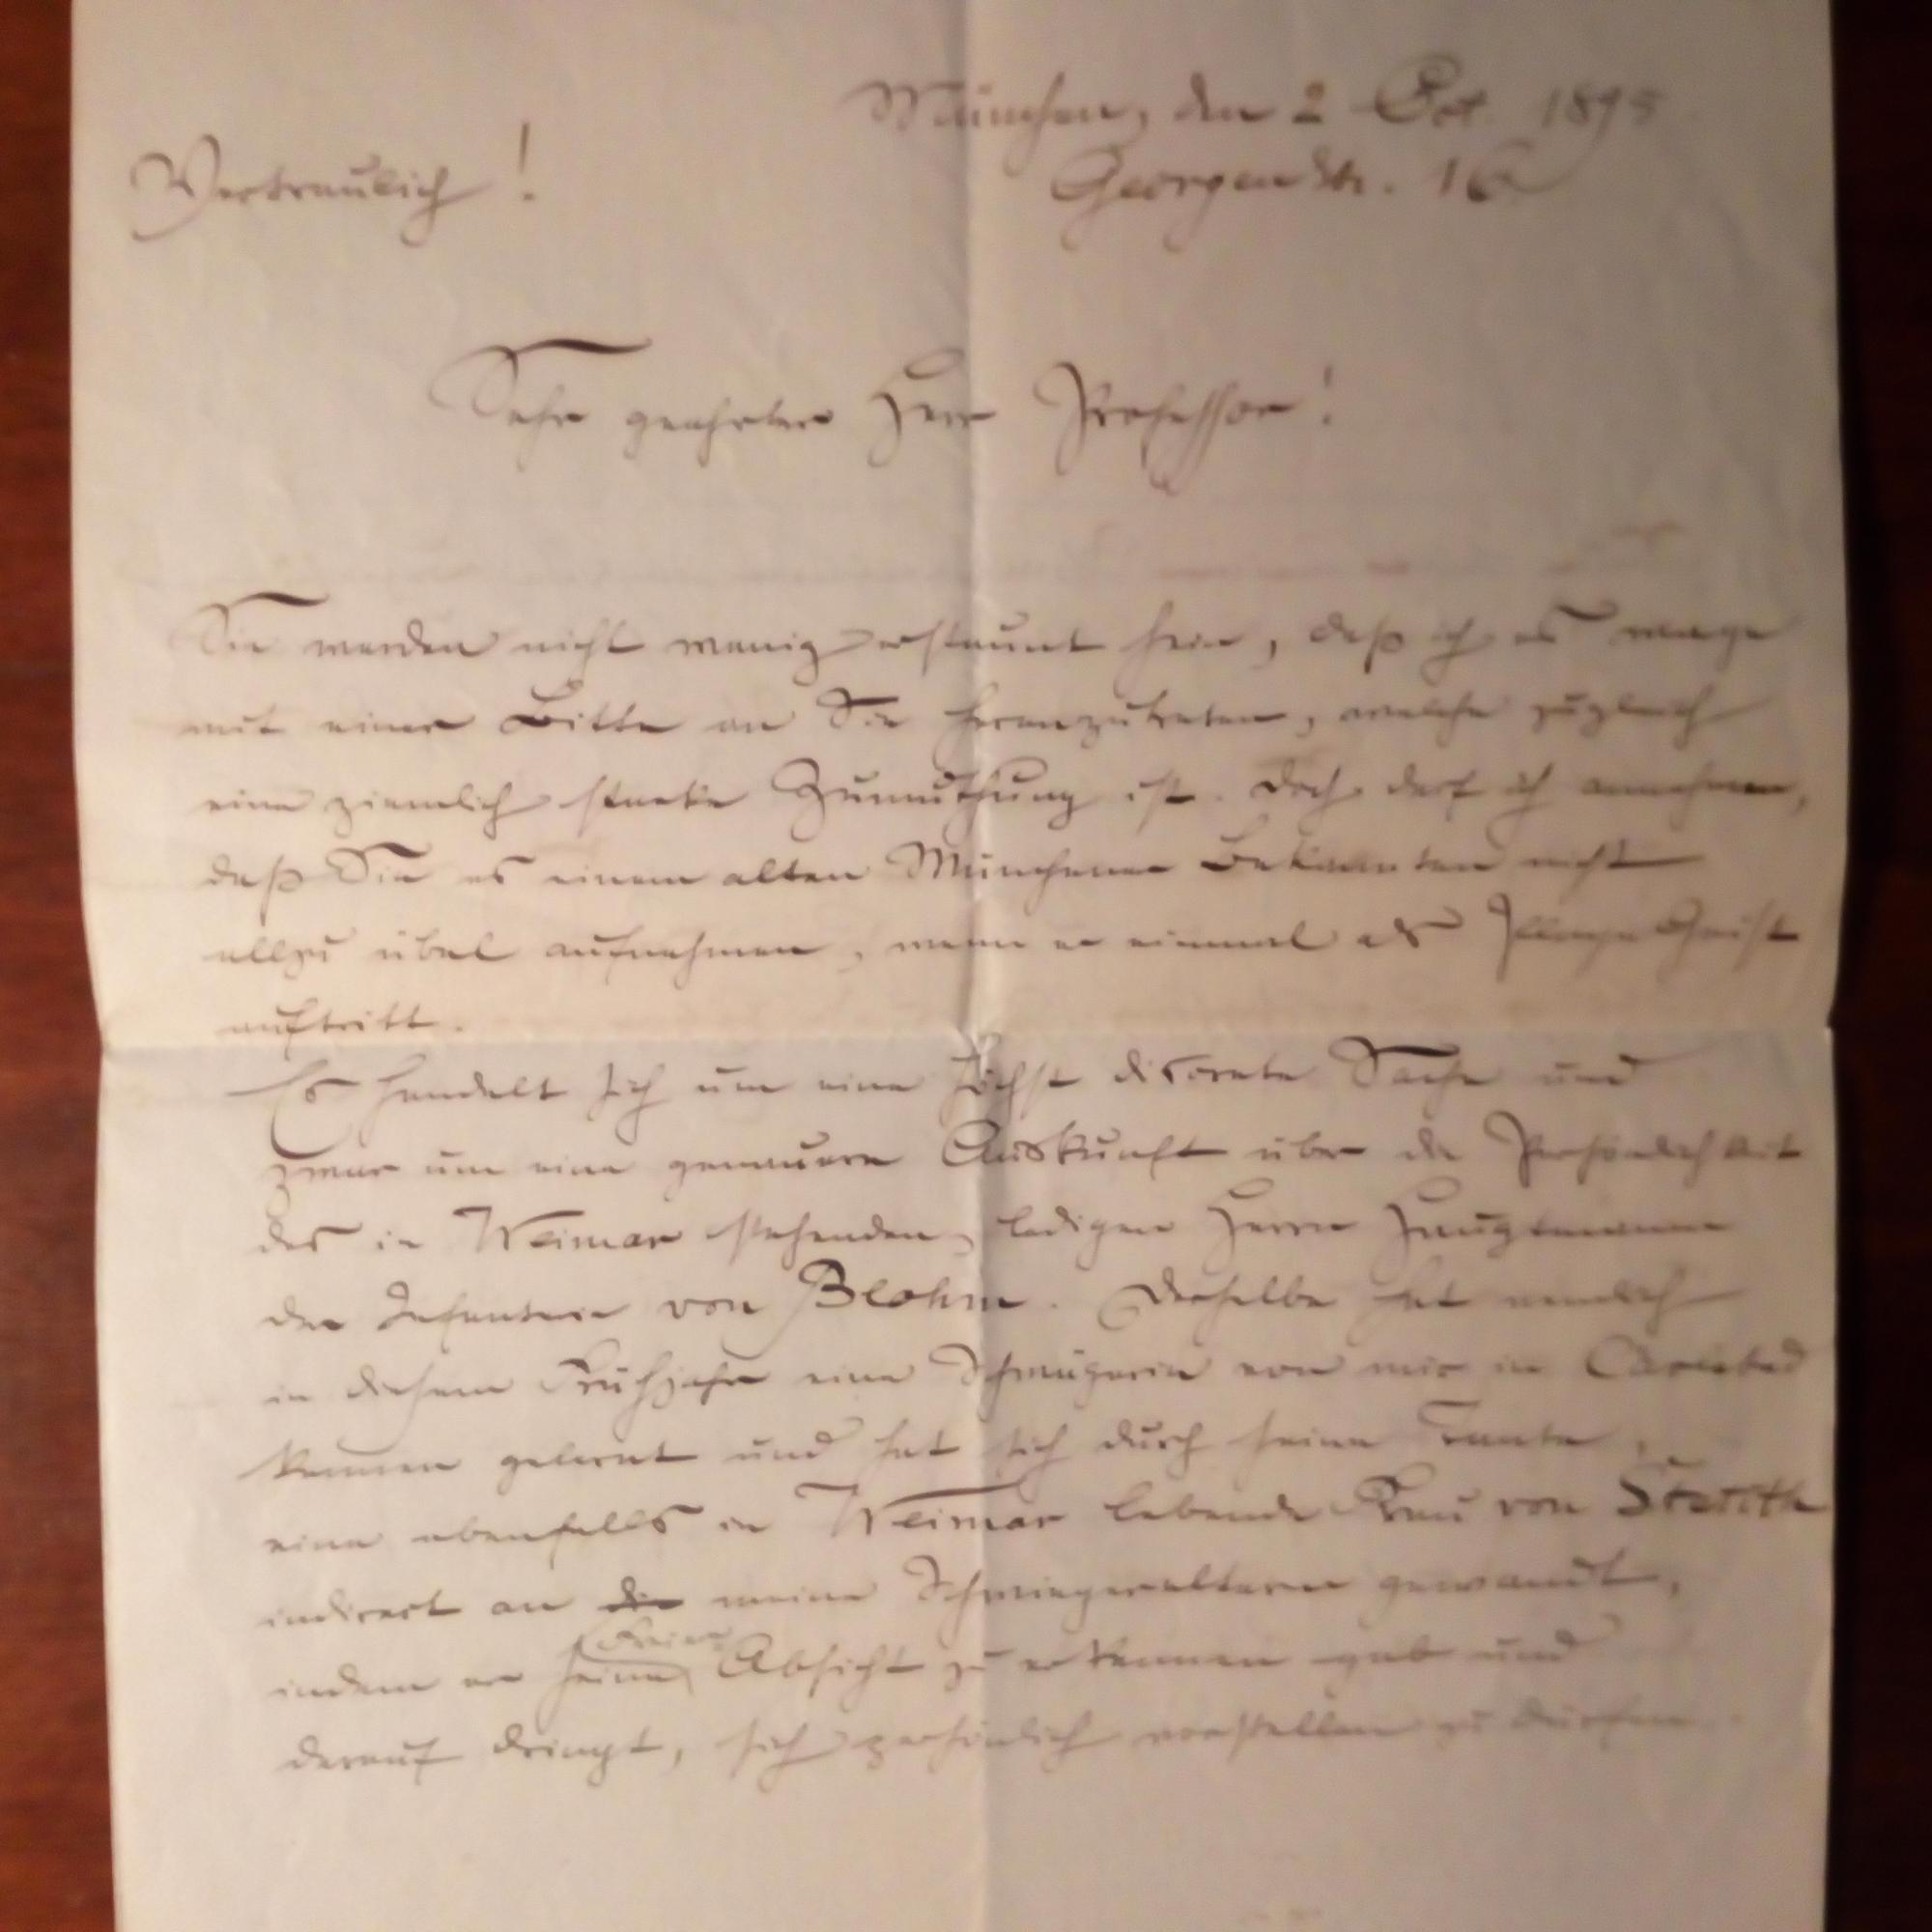 München, den 2 Oct. 1895
Vertraulich!
Georgenstr. 16
Sehr geehrter Herr Professor!
Sie werden nicht wenig erstaunt sein, daß ich es wage
mit einer Bitte an Sie heranzutreten, welche zugleich
eine ziemlich starke Zumuthung ist. Doch darf ich annehmen,
daß Sie es einem alten Münchener Bekannten nicht
allzu übel aufnehmen, wenn er einmal als
auftritt.
Es handelt sich um eine höchst discrete Sache und
zwar um eine genauere Auskunft über die Persönlichkeit
des in Weimar stehenden, ledigen Herrn Hauptmann
der Infanterie von Blohm. Derselbe hat nemlich
in diesem Frühjahr eine Schwägerin von mir in Carlsbad
kennen gelernt und hat sich durch seine Tante,
eine ebenfalls in Weimar lebende Frau von
indirect an die meine Schwiegereltern gewandt,
indem er seine Absicht zu erkennen gab und
darauf dringt, sich persönlich vorstellen zu dürfen.